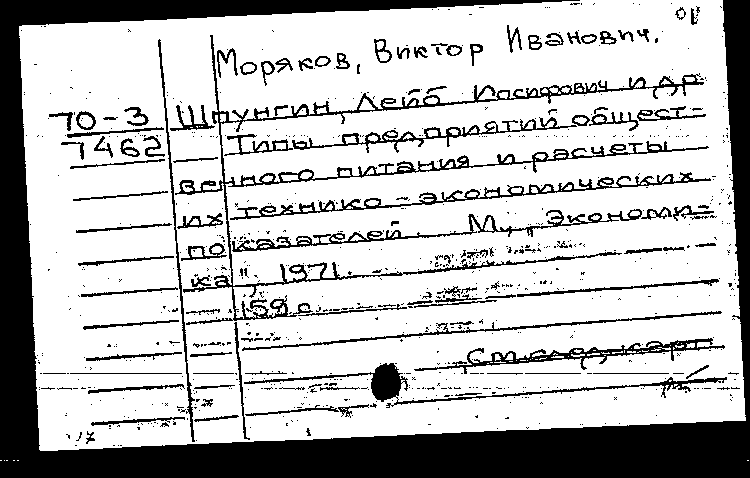 Моряков, Виктор Иванович.
70-3 Шпунгин, Лейб Иосифович и др
7462 Типы предприятий общест-
венного питания и расчеты
их технико-экономических
показателей. М., „Экономи-
ка", 1971.
159 с
См. след. карт.